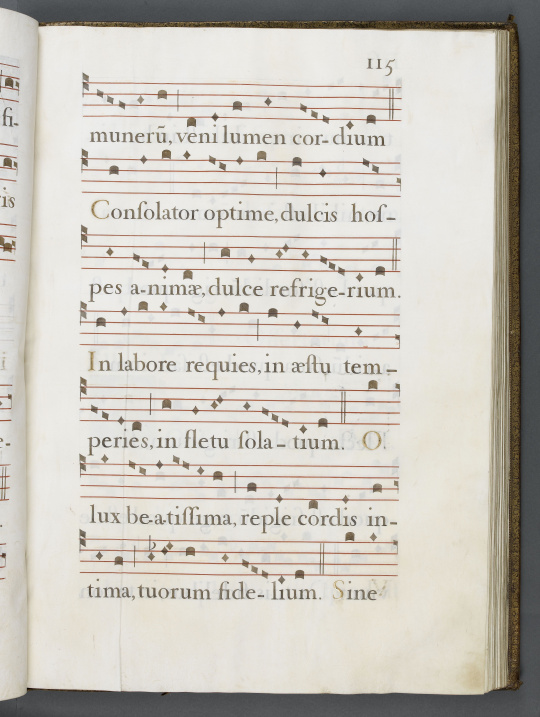 115
munerũ, veni lumen cor-dium
Conſolator optime, dulcis hoſ-
pes a-nimæ, dulce refrige-rium.
In labore requies, in æſtu tem-
peries, in fletu ſola-tium. O.
lux be-a-tiſſima, reple cordis in-
tima, tuorum fide-lium. Sine
fi-
is
e-